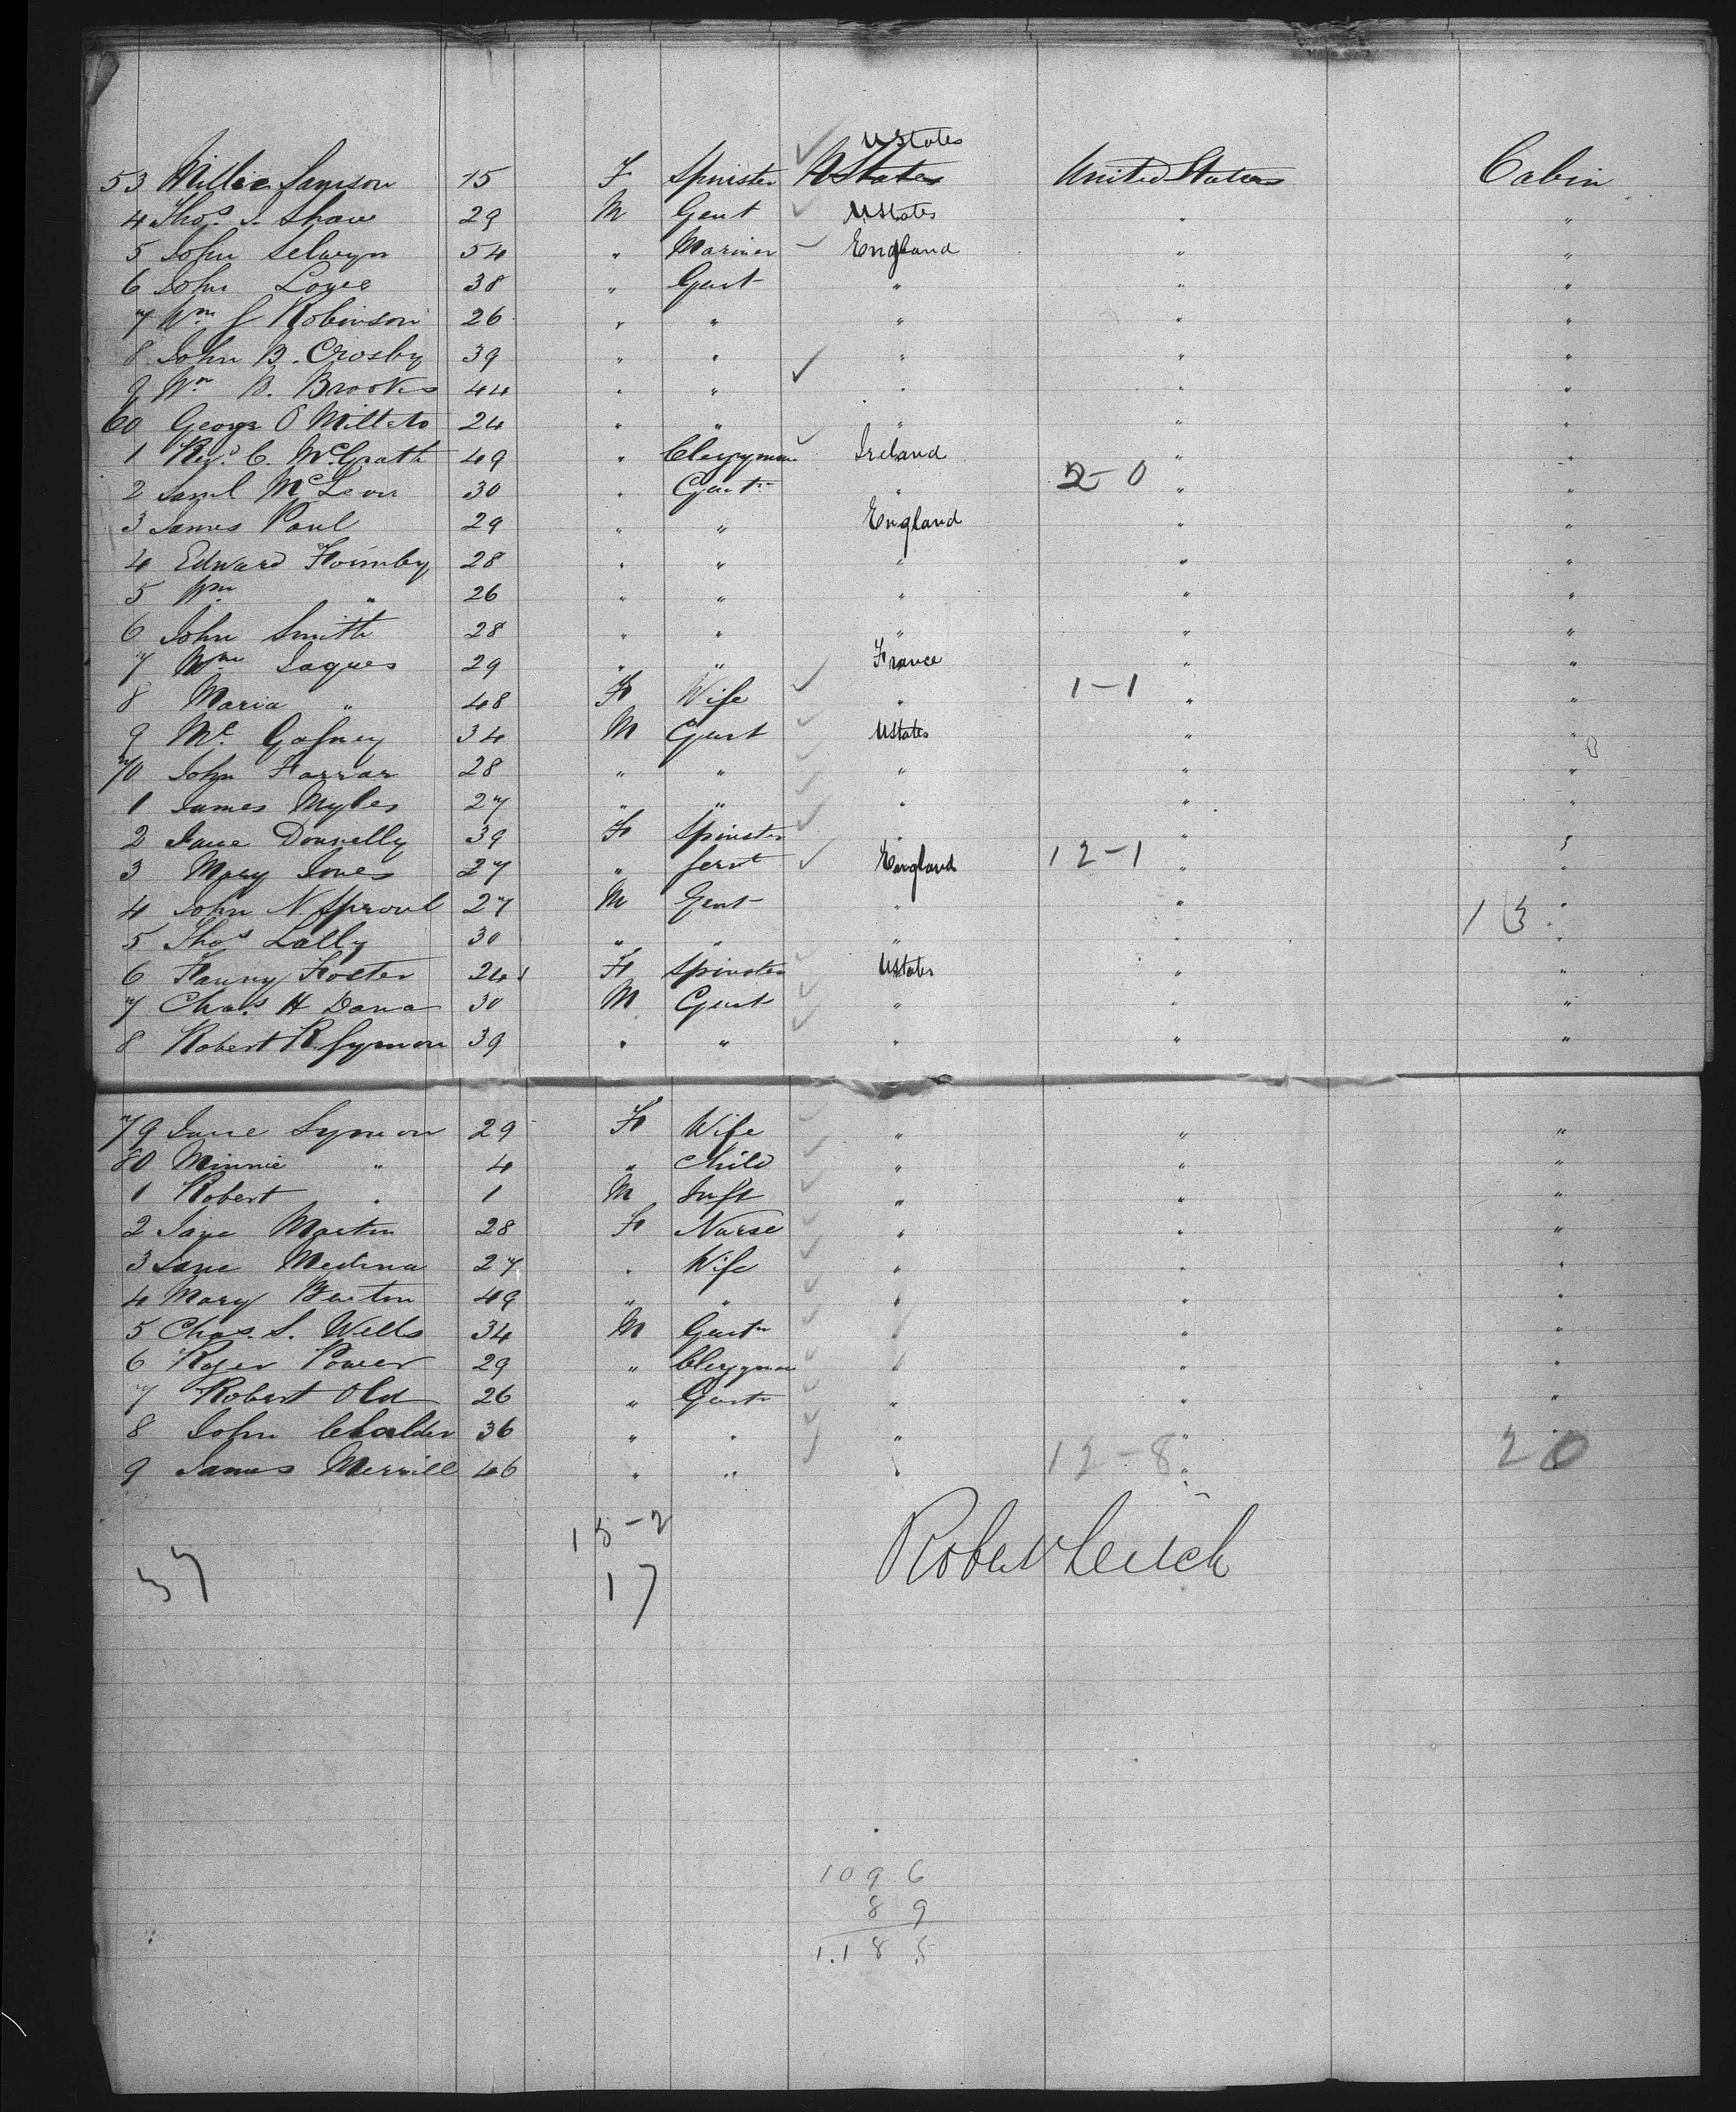 U States
53 Millie Samson 15 F Spinster U States United States Cabin
4 Thos. J. Shaw 29 M Gent U States " "
5 John Selwyn 54 " Mariner England " "
6 John 38 " Gent " " "
7 Wm J Robinson 26 " " " " "
8 John B. Crosby 39 " " " " "
9 Wm B. Brooks 44 " " " " "
60 George O 24 " " " " "
1 Revd. C. McGrath 49 " Clergyman Ireland " "
2 Saml 30 " Gent " 2-0 " "
3 James Paul 29 " " England " "
4 Edward Formby 28 " " " " "
5 Wm " 26 " " " " "
6 John Smith 28 " " " " "
7 Wm Jaques 29 " " France " "
8 Maria " 48 F Wife " 1-1 " "
9 Mc Gafney 34 M Gent U States " "
70 John Farrar 28 " " " " "
1 James Myles 27 " " " " "
2 Jane Donnelly 39 F Spinster " " "
3 Mary Jones 27 " Servt England 12-1 " "
4 John N. Sproul 27 M Gent " " 13 "
5 Thos Lally 30 " " " " "
6 Fanny Foster 24 F Spinster U States " "
7 Chas. H Dana 30 M Gent " " "
8 Robert R. Symon 39 " " " " "
79 Jane Symon 29 F Wife " " "
80 Minnie " 4 " Child " " "
1 Robert " 1 M Inft " " "
2 Jane Martin 28 F Nurse " " "
3 Jane Medina 27 " Wife " " "
4 Mary 49 " " " " "
5 Chas. S. Wells 34 M Gent " " "
6 Roger Power 29 " Clergyman " " "
7 Robert Old 26 " Gent " " "
8 John Chalder 36 " " " " "
9 James Merrill 46 " " " 12-8 " 20
15-2
37 17 Robert Leitch
1096
89
1.185